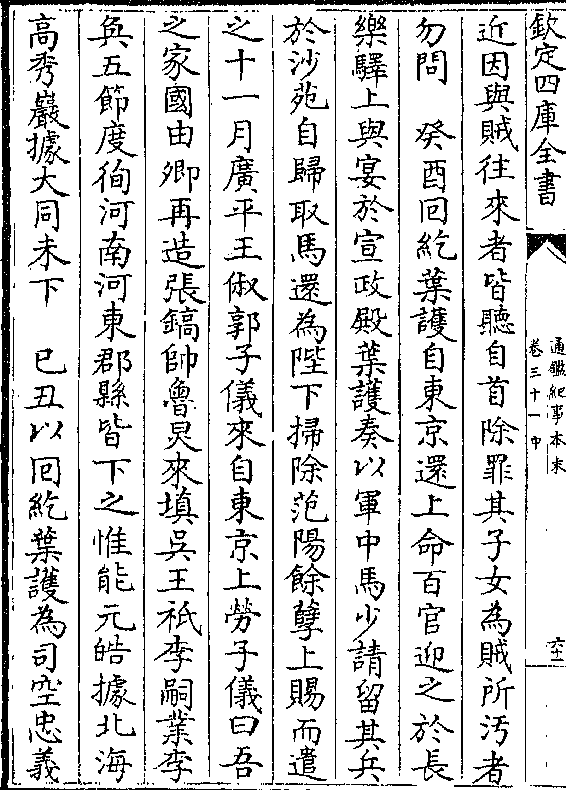 欽定四庫全書
通鑑紀事本末
卷三十一中
六十一
近因與賊往來者皆聽自首除罪其子女為賊所汚者
勿問　癸酉回紇葉護自東京還上命百官迎之於長
樂驛上與宴於宣政殿葉護奏以軍中馬少請留其兵
於沙苑自歸取馬還為陛下掃除范陽餘孽上賜而遣
之十一月廣平王俶郭子儀來自東京上勞子儀曰吾
之家國由卿再造張鎬帥魯炅來填吳王祗李嗣業李
奐五節度徇河南河東郡縣皆下之惟能元皓據北海
高秀巖據大同未下　已丑以回紇葉護為司空忠義